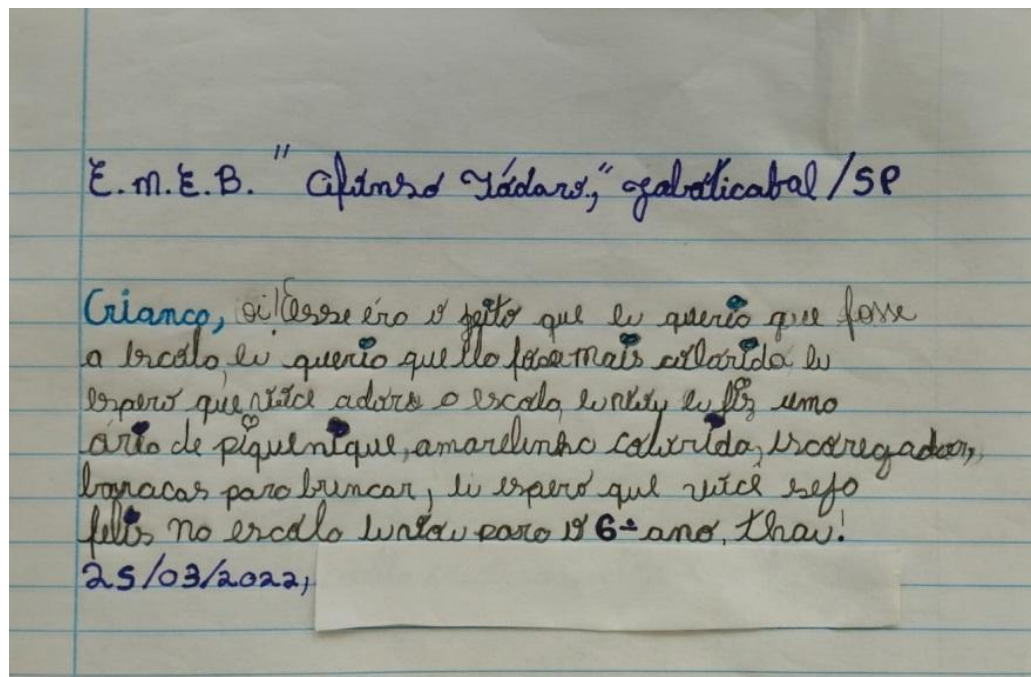 E.M.E.B. "Afonso Tódaro," Jaboticabal/SP
Criança, oi! Esse éra o jeito que eu queria que fosse
a escola, eu queria que ela fose mais colorida eu
espero que você adore a escola, eu fiz uma
ária de piquenique, amarelinha colorida, escoregador,
baracas para brincar, eu espero que você seja
felis na escola para o 6º ano, thau!
25/03/2022,